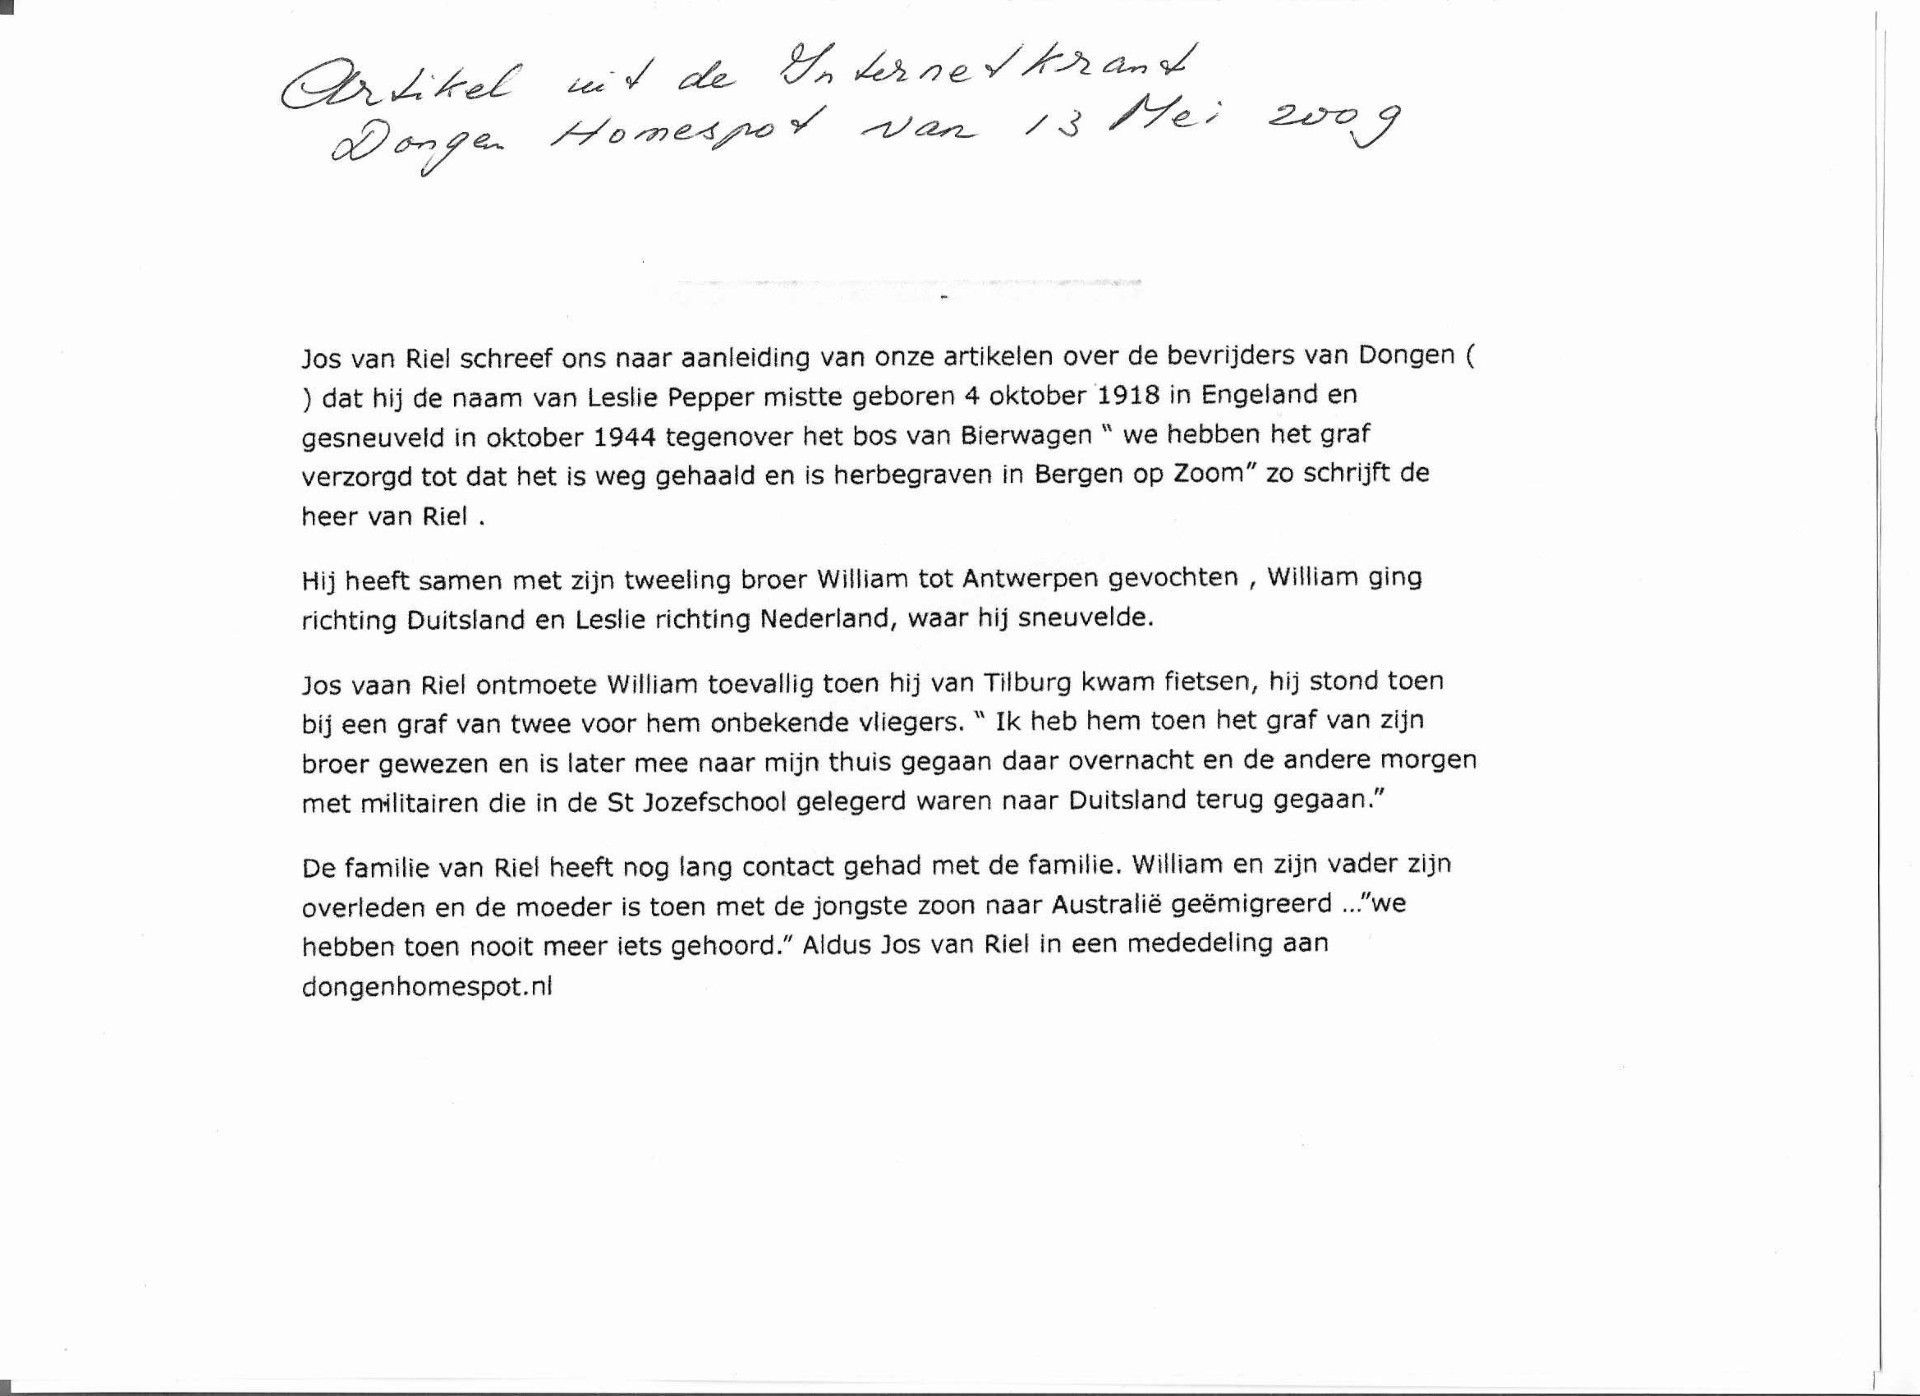 Artikel uit de Internetkrant
Dongen Homespot van 13 Mei 2009
Jos van Riel schreef ons naar aanleiding van onze artikelen over de bevrijders van Dongen (
) dat hij de naam van Leslie Pepper mistte geboren 4 oktober 1918 in Engeland en
gesneuveld in oktober 1944 tegenover het bos van Bierwagen " we hebben het graf
verzorgd tot dat het is weg gehaald en is herbegraven in Bergen op Zoom" zo schrijft de
heer van Riel .
Hij heeft samen met zijn tweeling broer William tot Antwerpen gevochten , William ging
richting Duitsland en Leslie richting Nederland, waar hij sneuvelde.
Jos vaan Riel ontmoete William toevallig toen hij van Tilburg kwam fietsen, hij stond toen
bij een graf van twee voor hem onbekende vliegers. " Ik heb hem toen het graf van zijn
broer gewezen en is later mee naar mijn thuis gegaan daar overnacht en de andere morgen
met militairen die in de St Jozefschool gelegerd waren naar Duitsland terug gegaan."
De familie van Riel heeft nog lang contact gehad met de familie. William en zijn vader zijn
overleden en de moeder is toen met de jongste zoon naar Australië geëmigreerd ..."we
hebben toen nooit meer iets gehoord." Aldus Jos van Riel in een mededeling aan
dongenhomespot.nl